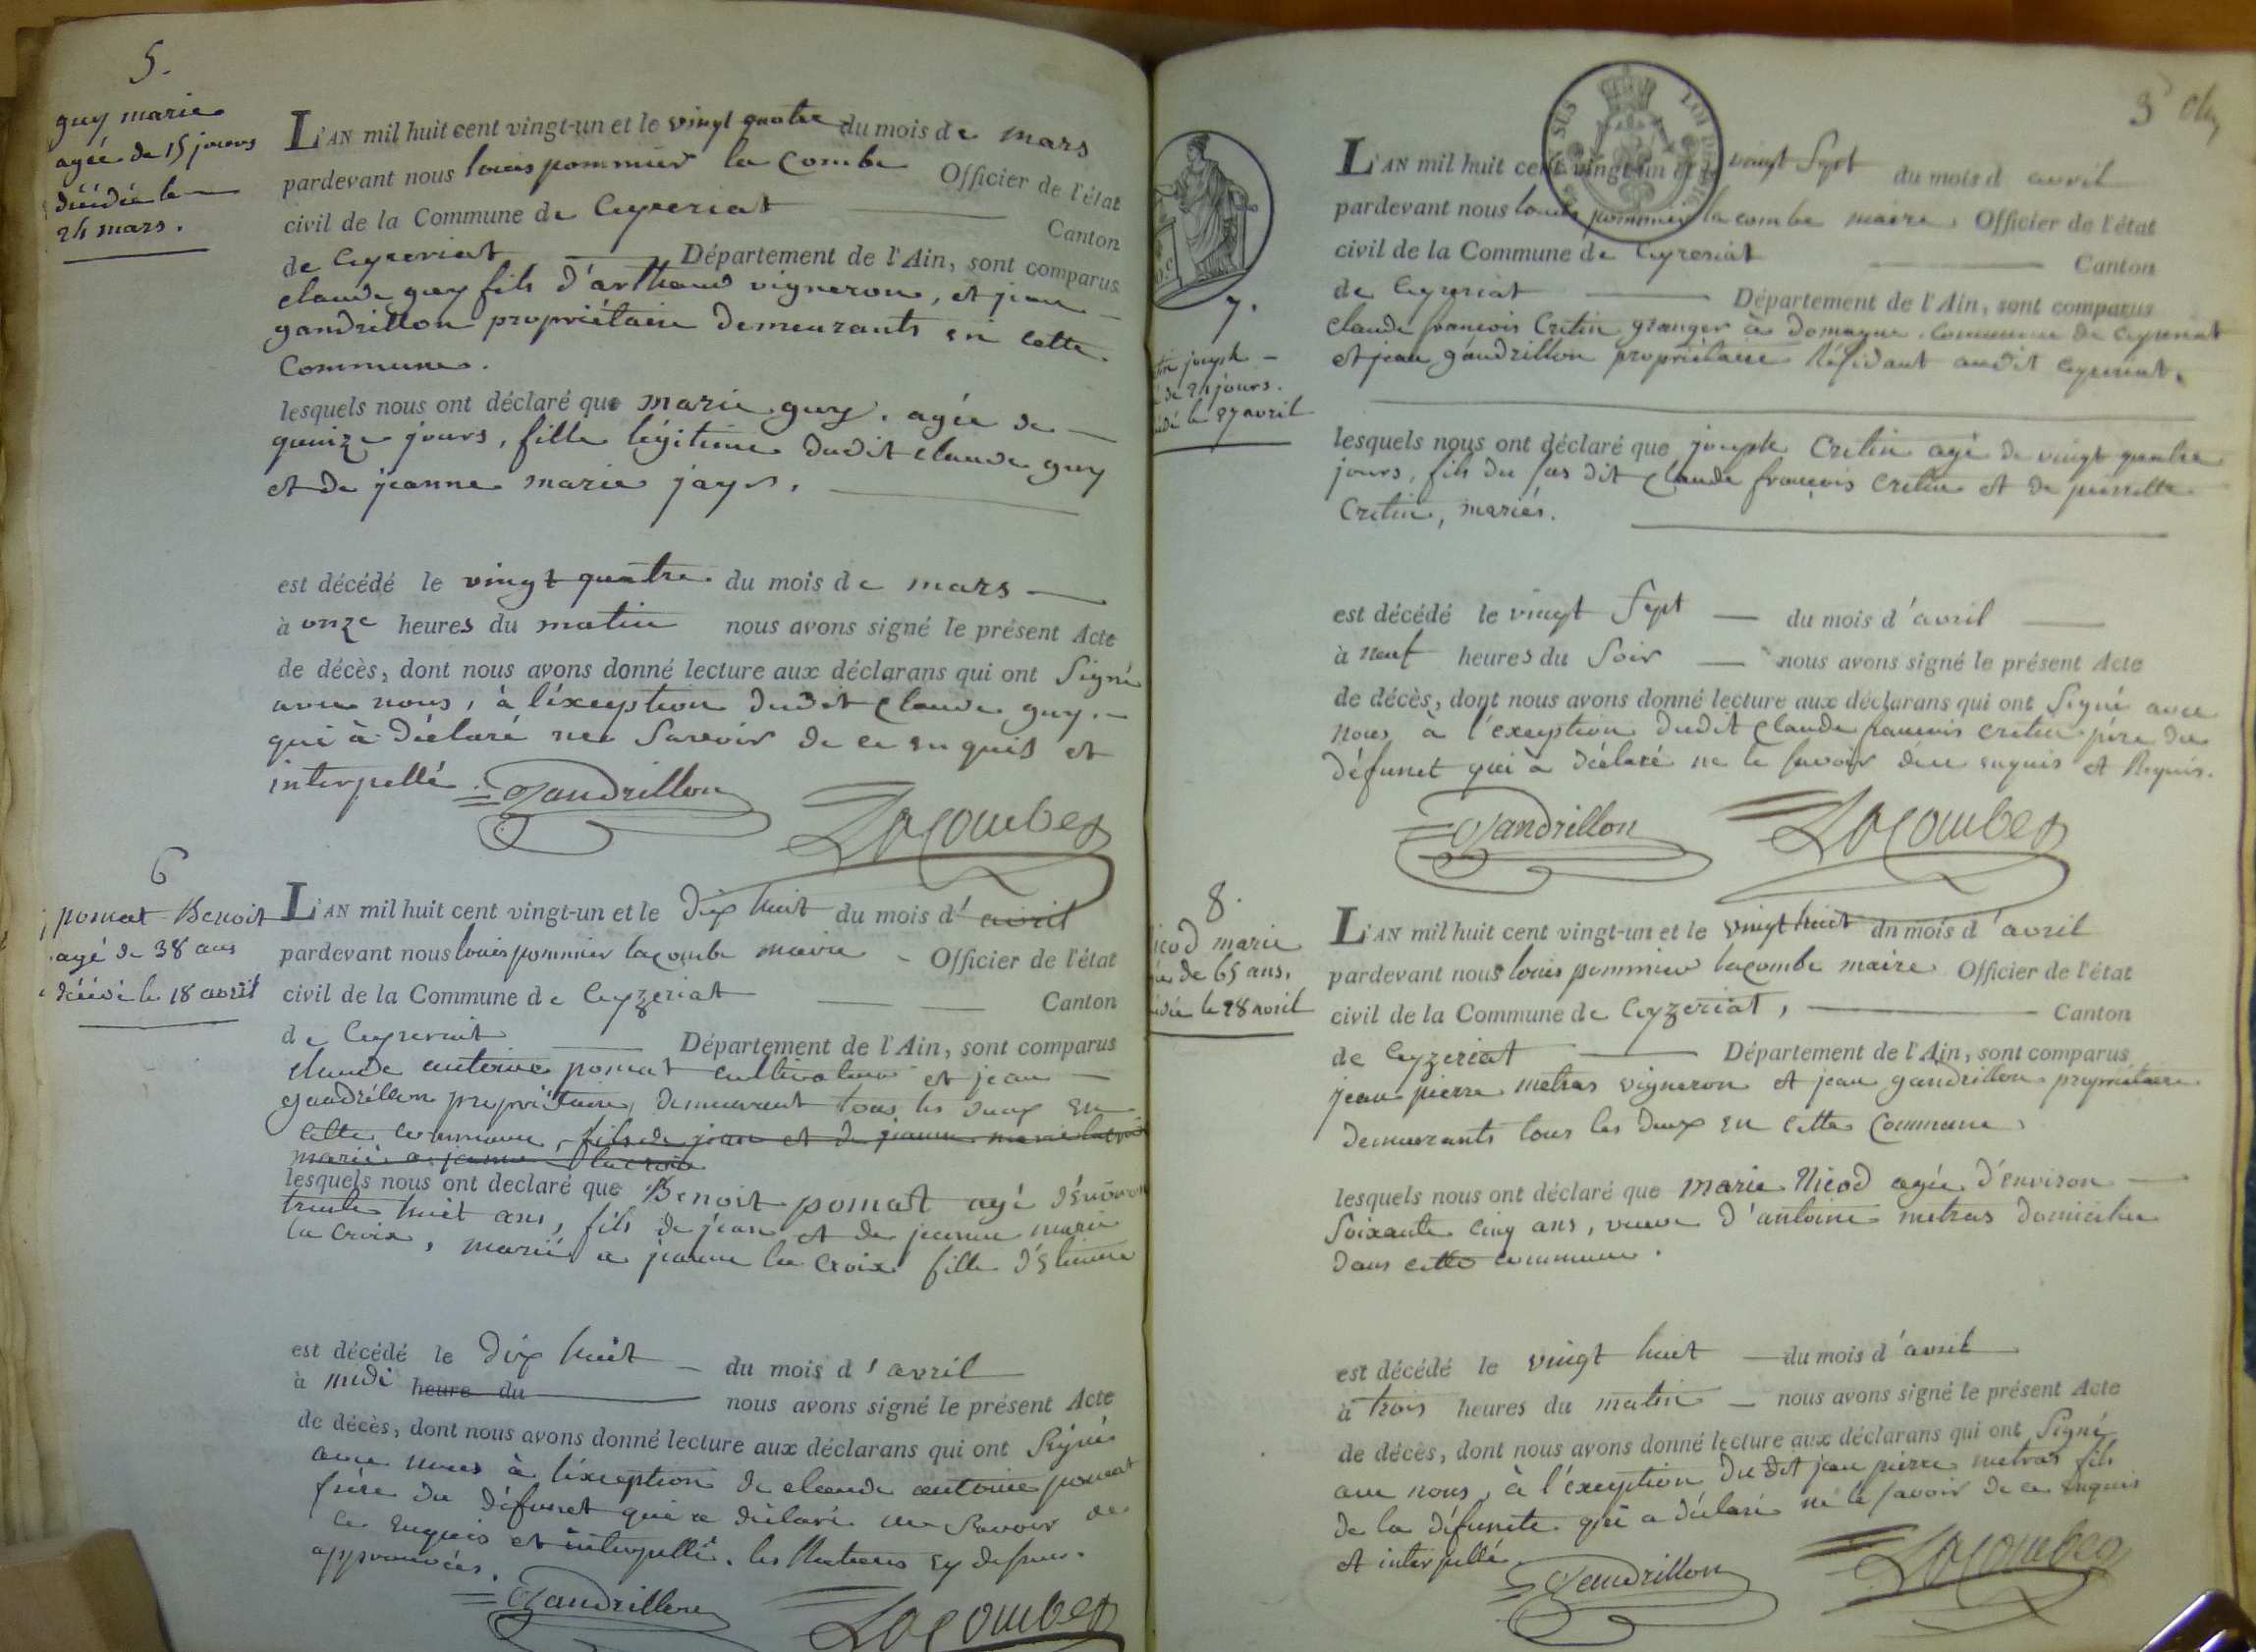 5.
guy marie
agée de 15 jours
décédée le
24 mars.
L'AN mil huit cent vingt-un et le vingt quatre du mois de mars
pardevant nous louis pommier la combe Officier de l'état
civil de la Commune de Ceyzeriat Canton
de Ceyzeriat Département de l'Ain, sont comparus
claude guy fils d'arthaud vigneron, et jean
gandrillon propriétaire demeurants en cette
Commune.
lesquels nous ont déclaré que marie guy, agée de
quinze jours, fille légitime dudit claude guy
et de jeanne marie jayr,
est décédé le vingt quatre du mois de mars
à onze heures du matin nous avons signé le présent Acte
de décès, dont nous avons donné lecture aux déclarans qui ont Signé
avec nous, à l'éxception dudit Claude guy,
qui à déclaré ne Savoir de ce enquis et
interpellé.
Gandrillon
Lacombe
6
pomat Benoit
agé de 38 ans
décédé le 18 avril
L'AN mil huit cent vingt-un et le dix huit du mois d'avril
pardevant nous louis pommier lacombe maire Officier de l'état
civil de la Commune de Ceyzeriat Canton
de Ceyzeriat Département de l'Ain, sont comparus
claude antoine pomat cultivateur et jean
gandrillon propriétaire, demeurant tous les deux en
cette commune, fils de jean et de jeanne marie lacroix
marié a jeanne lacroix
lesquels nous ont déclaré que Benoit pomat agé d'environ
trente huit ans, fils de jean et de jeanne marie
la croix, marié a jeanne la croix fille d'étienne
est décédé le dix huit du mois d'avril
à midi heure du nous avons signé le présent Acte
de décès, dont nous avons donné lecture aux déclarans qui ont Signé
avec nous à l'éxception de claude antoine pomat
frère du défunct qui a déclaré ne Savoir de
ce enquis et interpellé. les ratures cy dessus
approuvées.
Gandrillon
Lacombe
3
L'AN mil huit cent vingt-un et le vingt Sept du mois d avril
pardevant nous louis pommier la combe maire Officier de l'état
civil de la Commune de Ceyzeriat Canton
de Ceyzeriat Département de l'Ain, sont comparus
claude françois Cretin granger à domagne Commune de ceyzeriat
et jean gandrillon propriétaire Résidant audit ceyzeriat.
7.
joseph
de 24 jours.
le 27 avril
lesquels nous ont déclaré que joseph Cretin agé de vingt quatre
jours, fils du sus dit Claude françois Cretin et de pierrette
Cretin, mariés.
est décédé le vingt Sept du mois d'avril
à neuf heures du Soir nous avons signé le présent Acte
de décès, dont nous avons donné lecture aux déclarans qui ont Signé avec
nous, à l'exception dudit Claude francois cretin père du
défunct qui a déclaré ne le savoir de ce enquis et Requis.
Gandrillon
Lacombe
8.
marie
de 65 ans.
le 28 avril
L'AN mil huit cent vingt-un et le vingt huit du mois d'avril
pardevant nous louis pommier lacombe maire Officier de l'état
civil de la Commune de Ceyzeriat, Canton
de Ceyzeriat Département de l'Ain, sont comparus
jean pierre metras vigneron et jean gandrillon propriétaire
demeurants tous les deux en cette Commune,
lesquels nous ont déclaré que marie Nicod agée d'environ
Soixante cinq ans, veuve d'antoine metras domiciliée
dans cette commune.
est décédé le vingt huit du mois d'avril
à trois heures du matin nous avons signé le présent Acte
de décès, dont nous avons donné lecture aux déclarans qui ont Signé
avec nous, à l'éxception du dit jean pierre metras fils
de la défuncte qui a déclaré ne le savoir de ce enquis
et interpellé.
Gandrillon
Lacombe